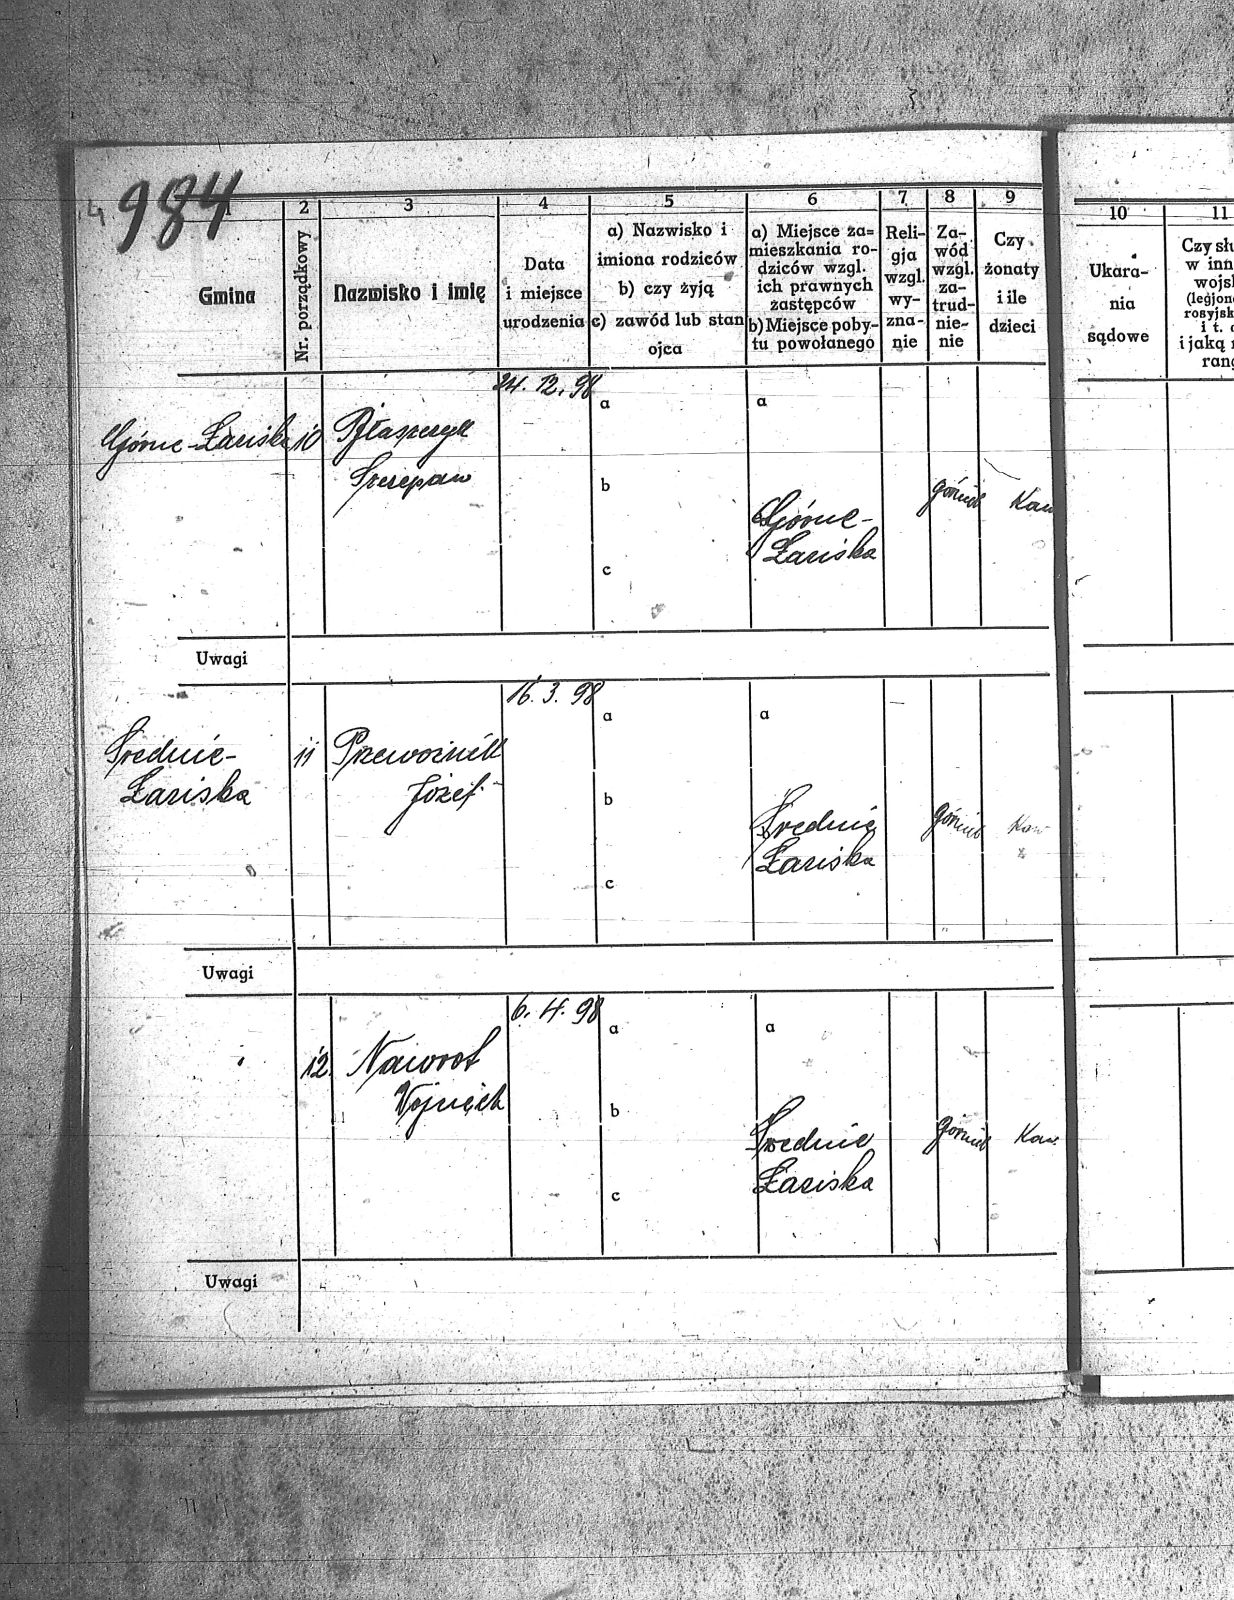 984
1
2
3
4
5
6
7
8
9
10
11
Gmina
Nr. porządkowy
Nazwisko i imię
Data
i miejsce
urodzenia
a) Nazwisko i
imiona rodziców
b) czy żyją
c) zawód lub stan
ojca
a) Miejsce za=
mieszkania ro-
dziców wzgl.
ich prawnych
zastępców
b) Miejsce poby-
tu powołanego
Reli-
gja
wzgl.
wy-
zna-
nie
Za-
wód
wzgl.
za-
trud-
nie-
nie
Czy
żonaty
i ile
dzieci
Ukara-
nia
sądowe
Czy słu
w inn
wojsk
(legjon
rosyjsk
i t. d
i jaką r
rang
24. 12. 98
Górne-Łaziska
10
Błaszczyk
Szczepan
a
b
c
a
Górne-
Łaziska
górnik
Kaw
Uwagi
16. 3. 98
Średnie-
Łaziska
11
Przewoźnik
Józef
a
b
c
a
Średnie
Łaziska
górnik
Kaw
Uwagi
6. 4. 98
12.
Nawrot
Wojciech
a
b
c
a
Średnie
Łaziska
górnik
Kaw.
Uwagi